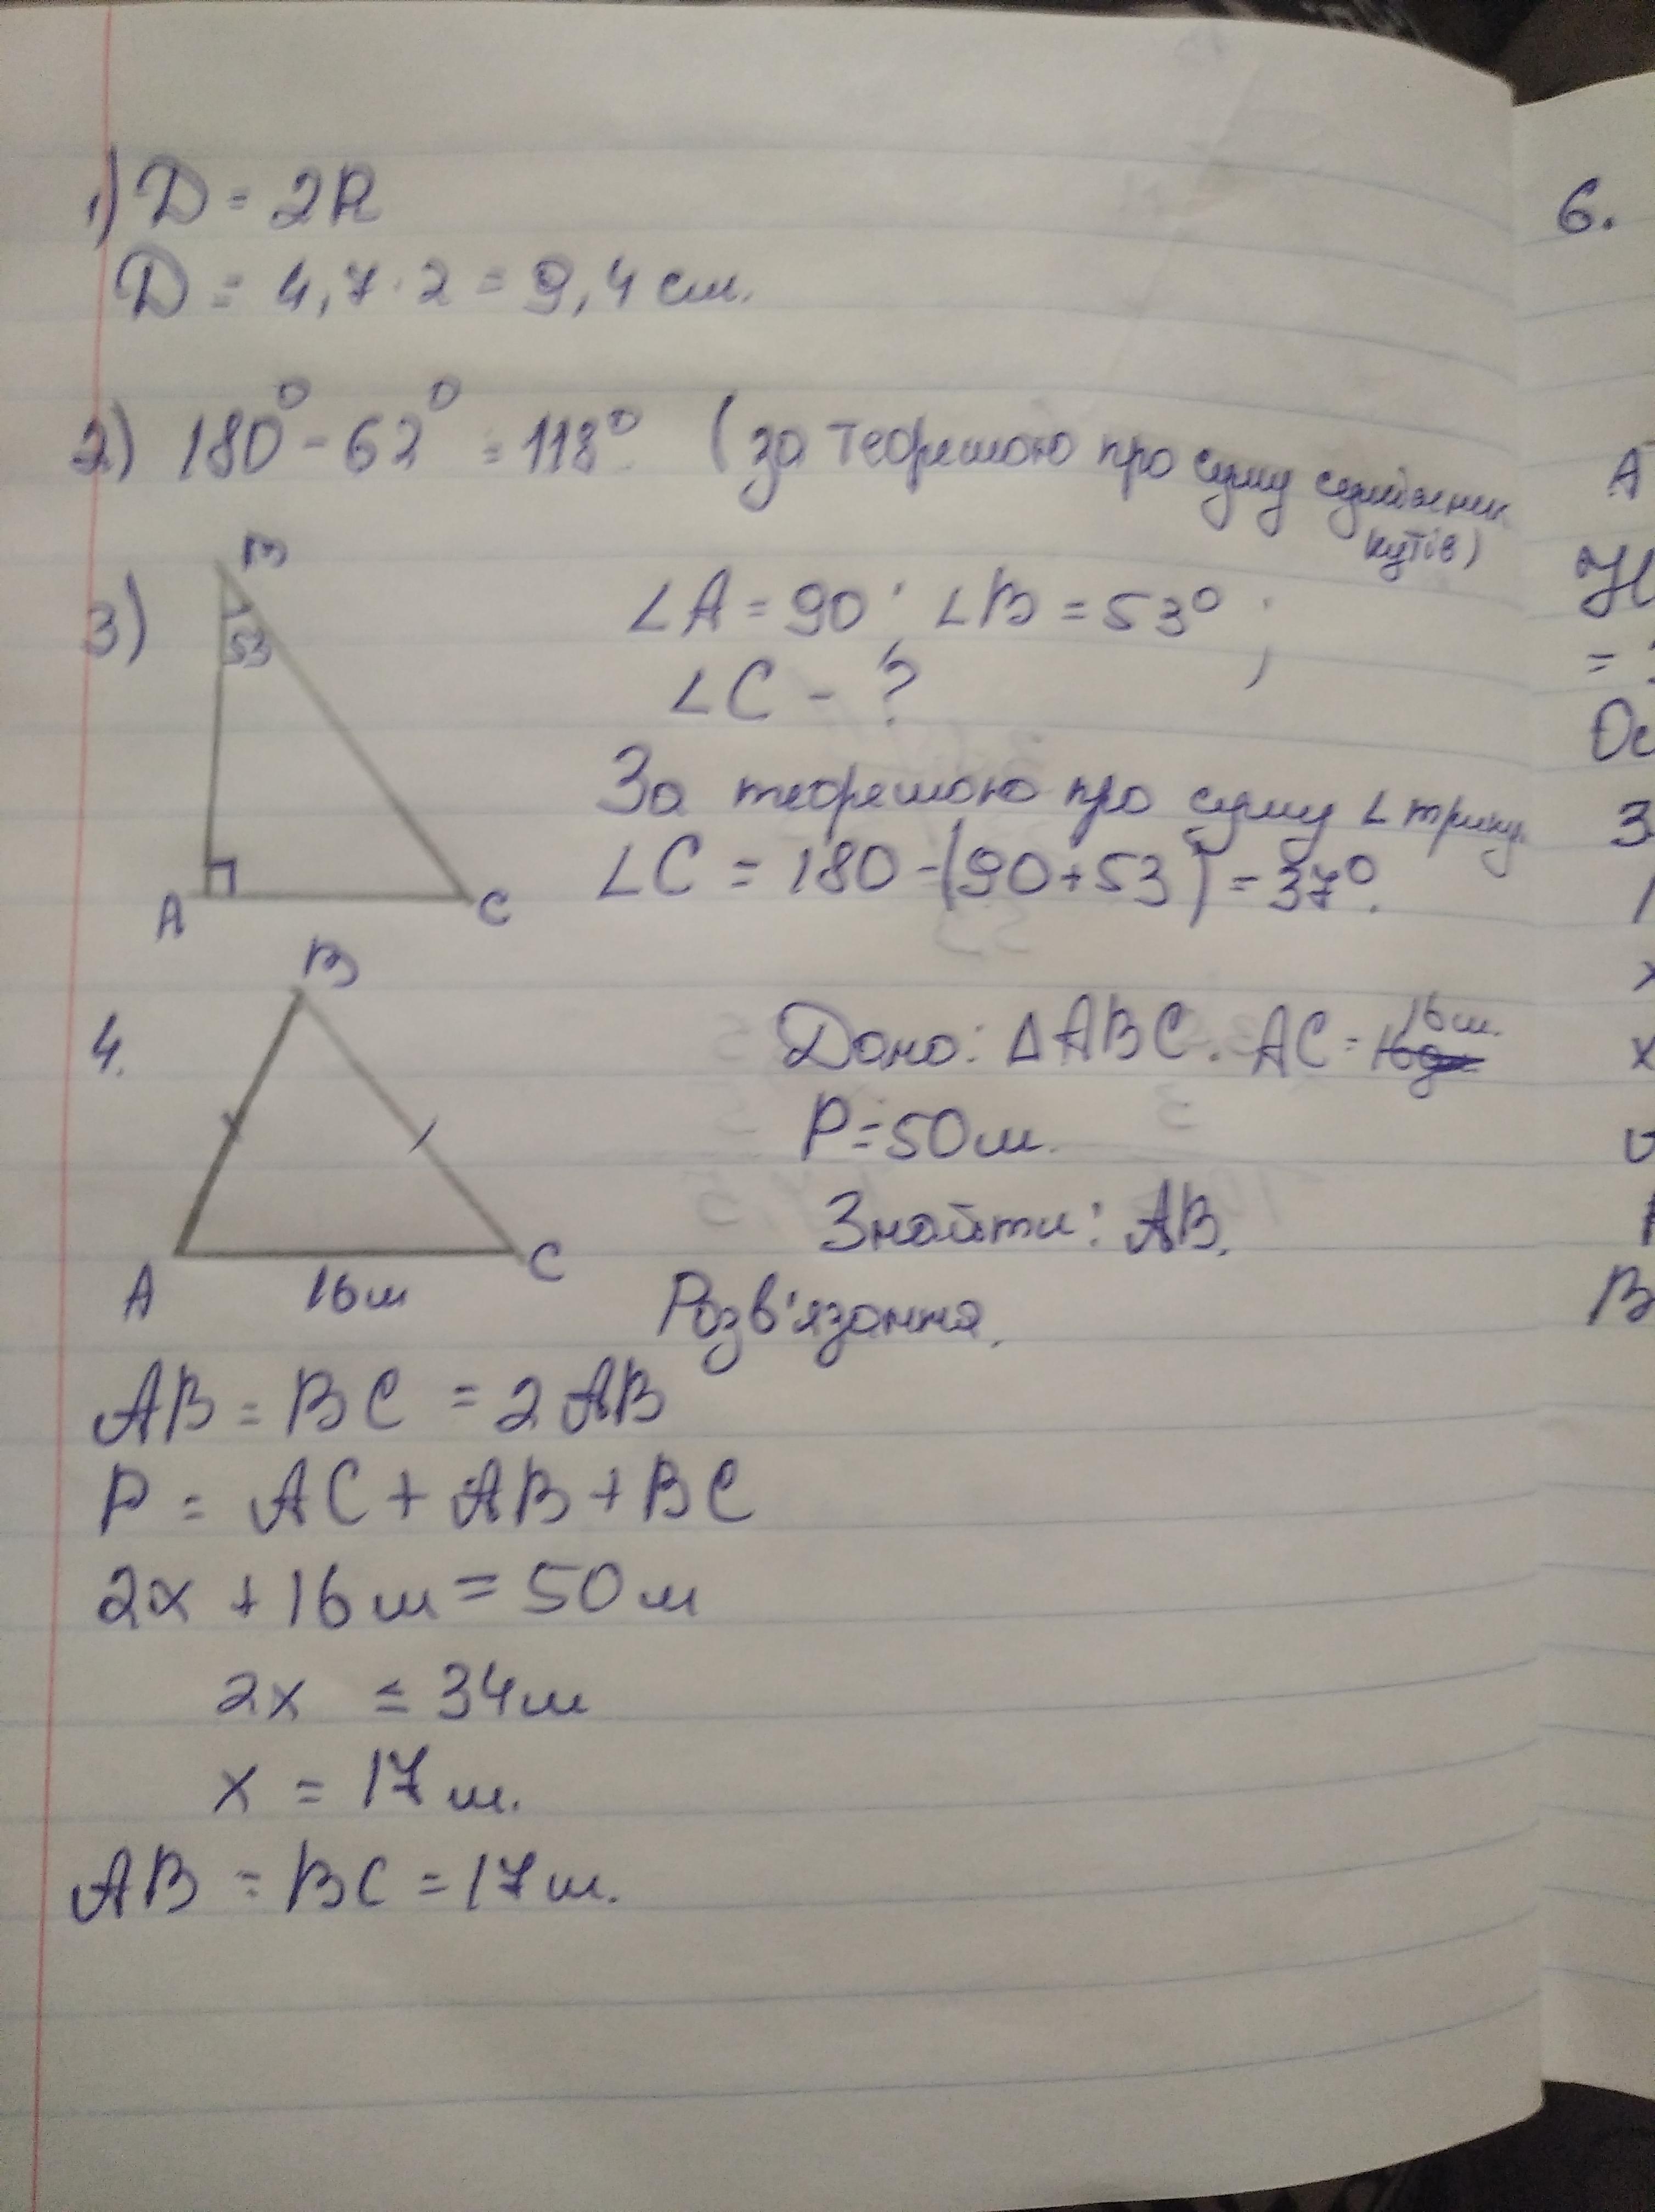 1) D = 2R
D = 4,7 · 2 = 9,4 см.
2) 180° - 62° = 118° (за теоремою про суму суміжних
кутів)
3)
B
53
A
C
∠A = 90°; ∠B = 53° ;
∠C - ?
За теоремою про суму ∠ трику.
∠C = 180 - (90+53) = 37°.
4.
B
A
C
16м
Дано: ΔABC. AC = 16м.
P = 50м.
Знайти: AB.
Розв'язання.
AB = BC = 2AB
P = AC + AB + BC
2x + 16м = 50м
2x = 34м
x = 17м.
AB = BC = 17м.
6.
A
= 
Ос
З
x
x
В